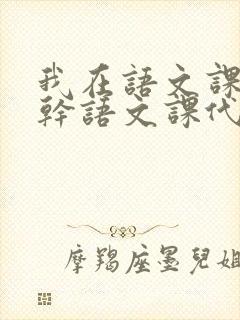 我在語文課
幹語文課代
摩羯座墨兒姐